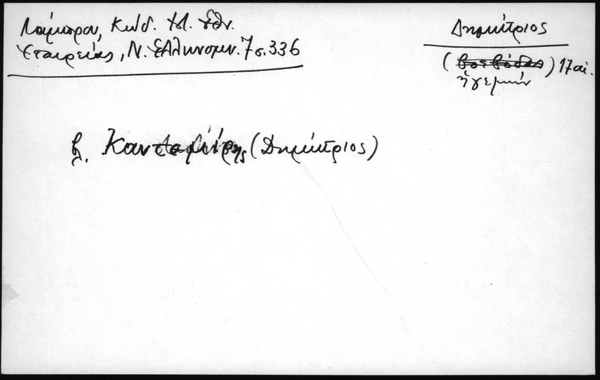 Λάμπρου, Κώδ. Ἱστ. Ἐθν.
Ἑταιρείας, Ν. Ἑλληνομν. 7 σ. 336
Δημήτριος
(βοεβόδας) 17 αἰ.
ἡγεμών
βλ. Καντεμίρης (Δημήτριος)